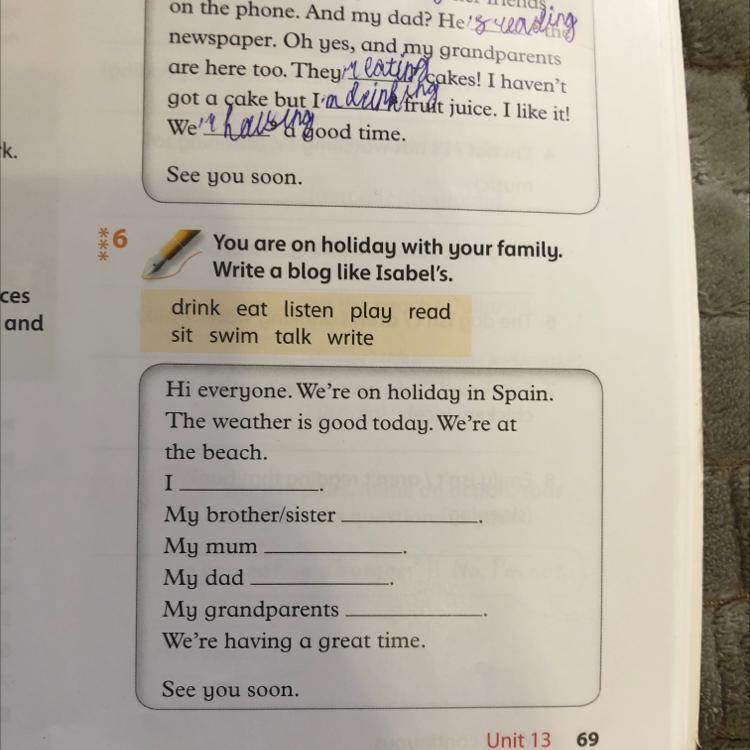 on the phone. And my dad? He's reading the
newspaper. Oh yes, and my grandparents
are here too. They're eating cakes! I haven't
got a cake but I'm drinking fruit juice. I like it!
We're having a good time.
See you soon.
k.
***6 You are on holiday with your family.
Write a blog like Isabel's.
ces
and
drink eat listen play read
sit swim talk write
Hi everyone. We're on holiday in Spain.
The weather is good today. We're at
the beach.
I ____________.
My brother/sister ____________.
My mum ____________.
My dad ____________.
My grandparents ____________.
We're having a great time.
See you soon.
Unit 13 69